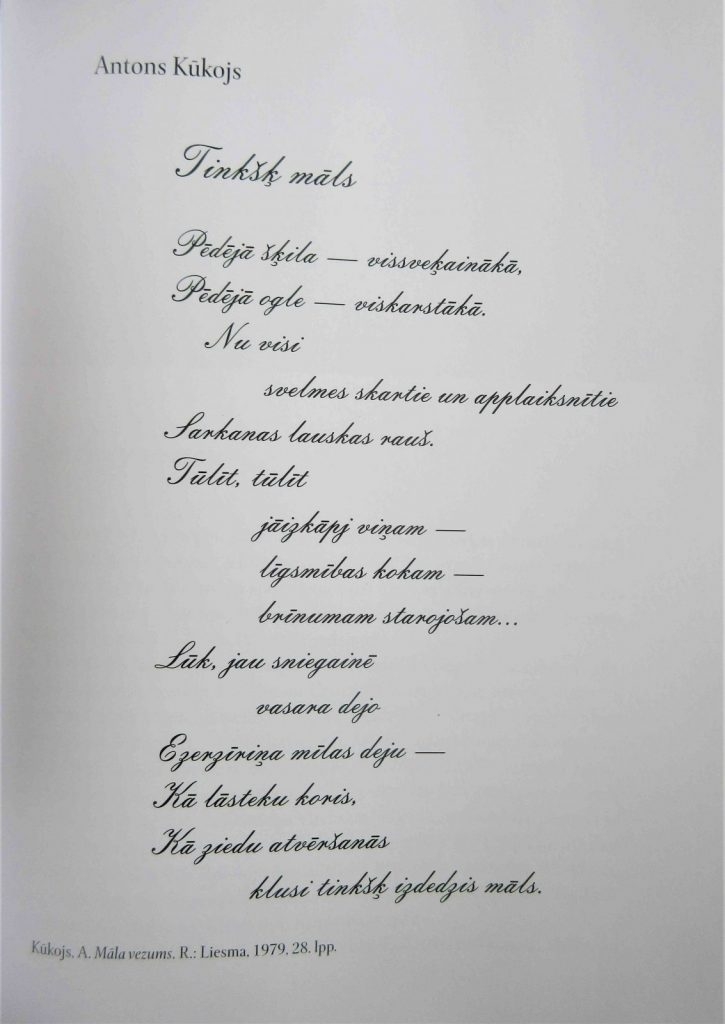 Antons Kūkojs
Tinkšķ māls
Pēdējā šķila — vissveķainākā,
Pēdējā ogle — viskarstākā.
Nu visi
svelmes skartie un applaiksnītie
Sarkanas lauskas rauš.
Tūlīt, tūlīt
jāizkāpj viņam —
līgsmības kokam —
brīnumam starojošam...
Lūk, jau sniegainē
vasara dejo
Ezerzīriņa mīlas deju —
Kā lāsteku koris,
Kā ziedu atvēršanās
klusi tinkšķ izdedzis māls.
Kūkojs, A. Māla vezums. R.: Liesma, 1979, 28. lpp.